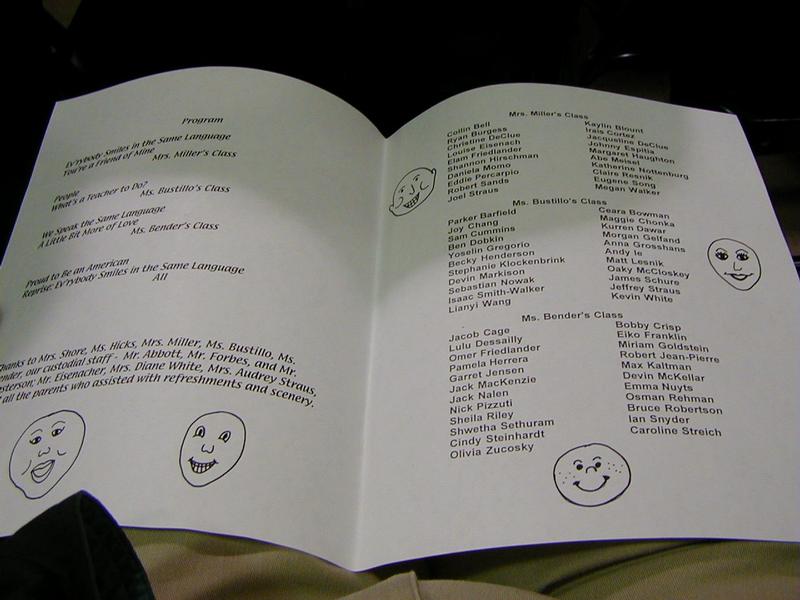 Program
Ev'rybody Smiles in the Same Language
You're a Friend of Mine
Mrs. Miller's Class
People
What's a Teacher to Do?
Ms. Bustillo's Class
We Speak the Same Language
A Little Bit More of Love
Ms. Bender's Class
Proud to Be an American
Reprise: Ev'rybody Smiles in the Same Language
All
Thanks to Mrs. Shore, Ms. Hicks, Mrs. Miller, Ms. Bustillo, Ms.
our custodial staff - Mr. Abbott, Mr. Forbes, and Mr.
Mr. Eisenacher, Mrs. Diane White, Mrs. Audrey Straus,
all the parents who assisted with refreshments and scenery.
Mrs. Miller's Class
Collin Bell
Ryan Burgess
Christine DeClue
Louise Eisenach
Elam Friedlander
Shannon Hirschman
Daniela Momo
Eddie Percarpio
Robert Sands
Joel Straus
Kaylin Blount
Irais Cortez
Jacqueline DeClue
Johnny Espilla
Margaret Haughton
Abe Meisel
Katherine Nottenburg
Claire Resnik
Eugene Song
Megan Walker
Ms. Bustillo's Class
Parker Barfield
Joy Chang
Sam Cummins
Ben Dobkin
Yoselin Gregorio
Becky Henderson
Stephanie Klockenbrink
Devin Markison
Sebastian Nowak
Isaac Smith-Walker
Lianyi Wang
Ceara Bowman
Maggie Chonka
Kurren Dawar
Morgan Gelfand
Anna Grosshans
Andy Ie
Matt Lesnik
Oaky McCloskey
James Schure
Jeffrey Straus
Kevin White
Ms. Bender's Class
Jacob Cage
Lulu Dessailly
Omer Friedlander
Pamela Herrera
Garret Jensen
Jack MacKenzie
Jack Nalen
Nick Pizzuti
Sheila Riley
Shwetha Sethuram
Cindy Steinhardt
Olivia Zucosky
Bobby Crisp
Eiko Franklin
Miriam Goldstein
Robert Jean-Pierre
Max Kaltman
Devin McKellar
Emma Nuyts
Osman Rehman
Bruce Robertson
Ian Snyder
Caroline Streich